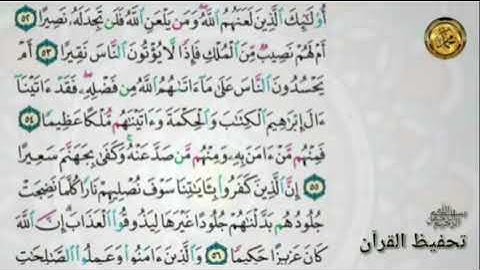 أُوْلَـٰٓئِكَ ٱلَّذِينَ لَعَنَهُمُ ٱللَّهُ وَمَن يَلْعَنِ ٱللَّهُ فَلَن تَجِدَ لَهُۥ نَصِيرًا ٥٢
أَمْ لَهُمْ نَصِيبٌ مِّنَ ٱلْمُلْكِ فَإِذًا لَّا يُؤْتُونَ ٱلنَّاسَ نَقِيرًا ٥٣ أَمْ
يَحْسُدُونَ ٱلنَّاسَ عَلَىٰ مَآ ءَاتَىٰهُمُ ٱللَّهُ مِن فَضْلِهِۦ فَقَدْ ءَاتَيْنَآ
ءَالَ إِبْرَٰهِيمَ ٱلْكِتَـٰبَ وَٱلْحِكْمَةَ وَءَاتَيْنَـٰهُم مُّلْكًا عَظِيمًا ٥٤
فَمِنْهُم مَّنْ ءَامَنَ بِهِۦ وَمِنْهُم مَّن صَدَّ عَنْهُ وَكَفَىٰ بِجَهَنَّمَ سَعِيرًا
٥٥ إِنَّ ٱلَّذِينَ كَفَرُواْ بِـَٔايَـٰتِنَا سَوْفَ نُصْلِيهِمْ نَارًا كُلَّمَا نَضِجَتْ
جُلُودُهُم بَدَّلْنَـٰهُمْ جُلُودًا غَيْرَهَا لِيَذُوقُواْ ٱلْعَذَابَ إِنَّ ٱللَّهَ
كَانَ عَزِيزًا حَكِيمًا ٥٦ وَٱلَّذِينَ ءَامَنُواْ وَعَمِلُواْ ٱلصَّـٰلِحَـٰتِ
تحفيظ القرآن